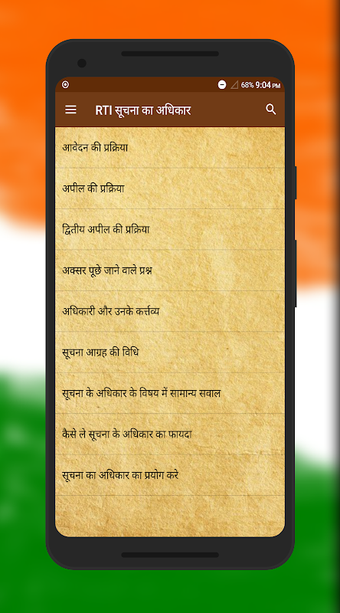 68% 9:04 PM
RTI सूचना का अधिकार
आवेदन की प्रक्रिया
अपील की प्रक्रिया
द्वितीय अपील की प्रक्रिया
अक्सर पूछे जाने वाले प्रश्न
अधिकारी और उनके कर्त्तव्य
सूचना आग्रह की विधि
सूचना के अधिकार के विषय में सामान्य सवाल
कैसे ले सूचना के अधिकार का फायदा
सूचना का अधिकार का प्रयोग करे